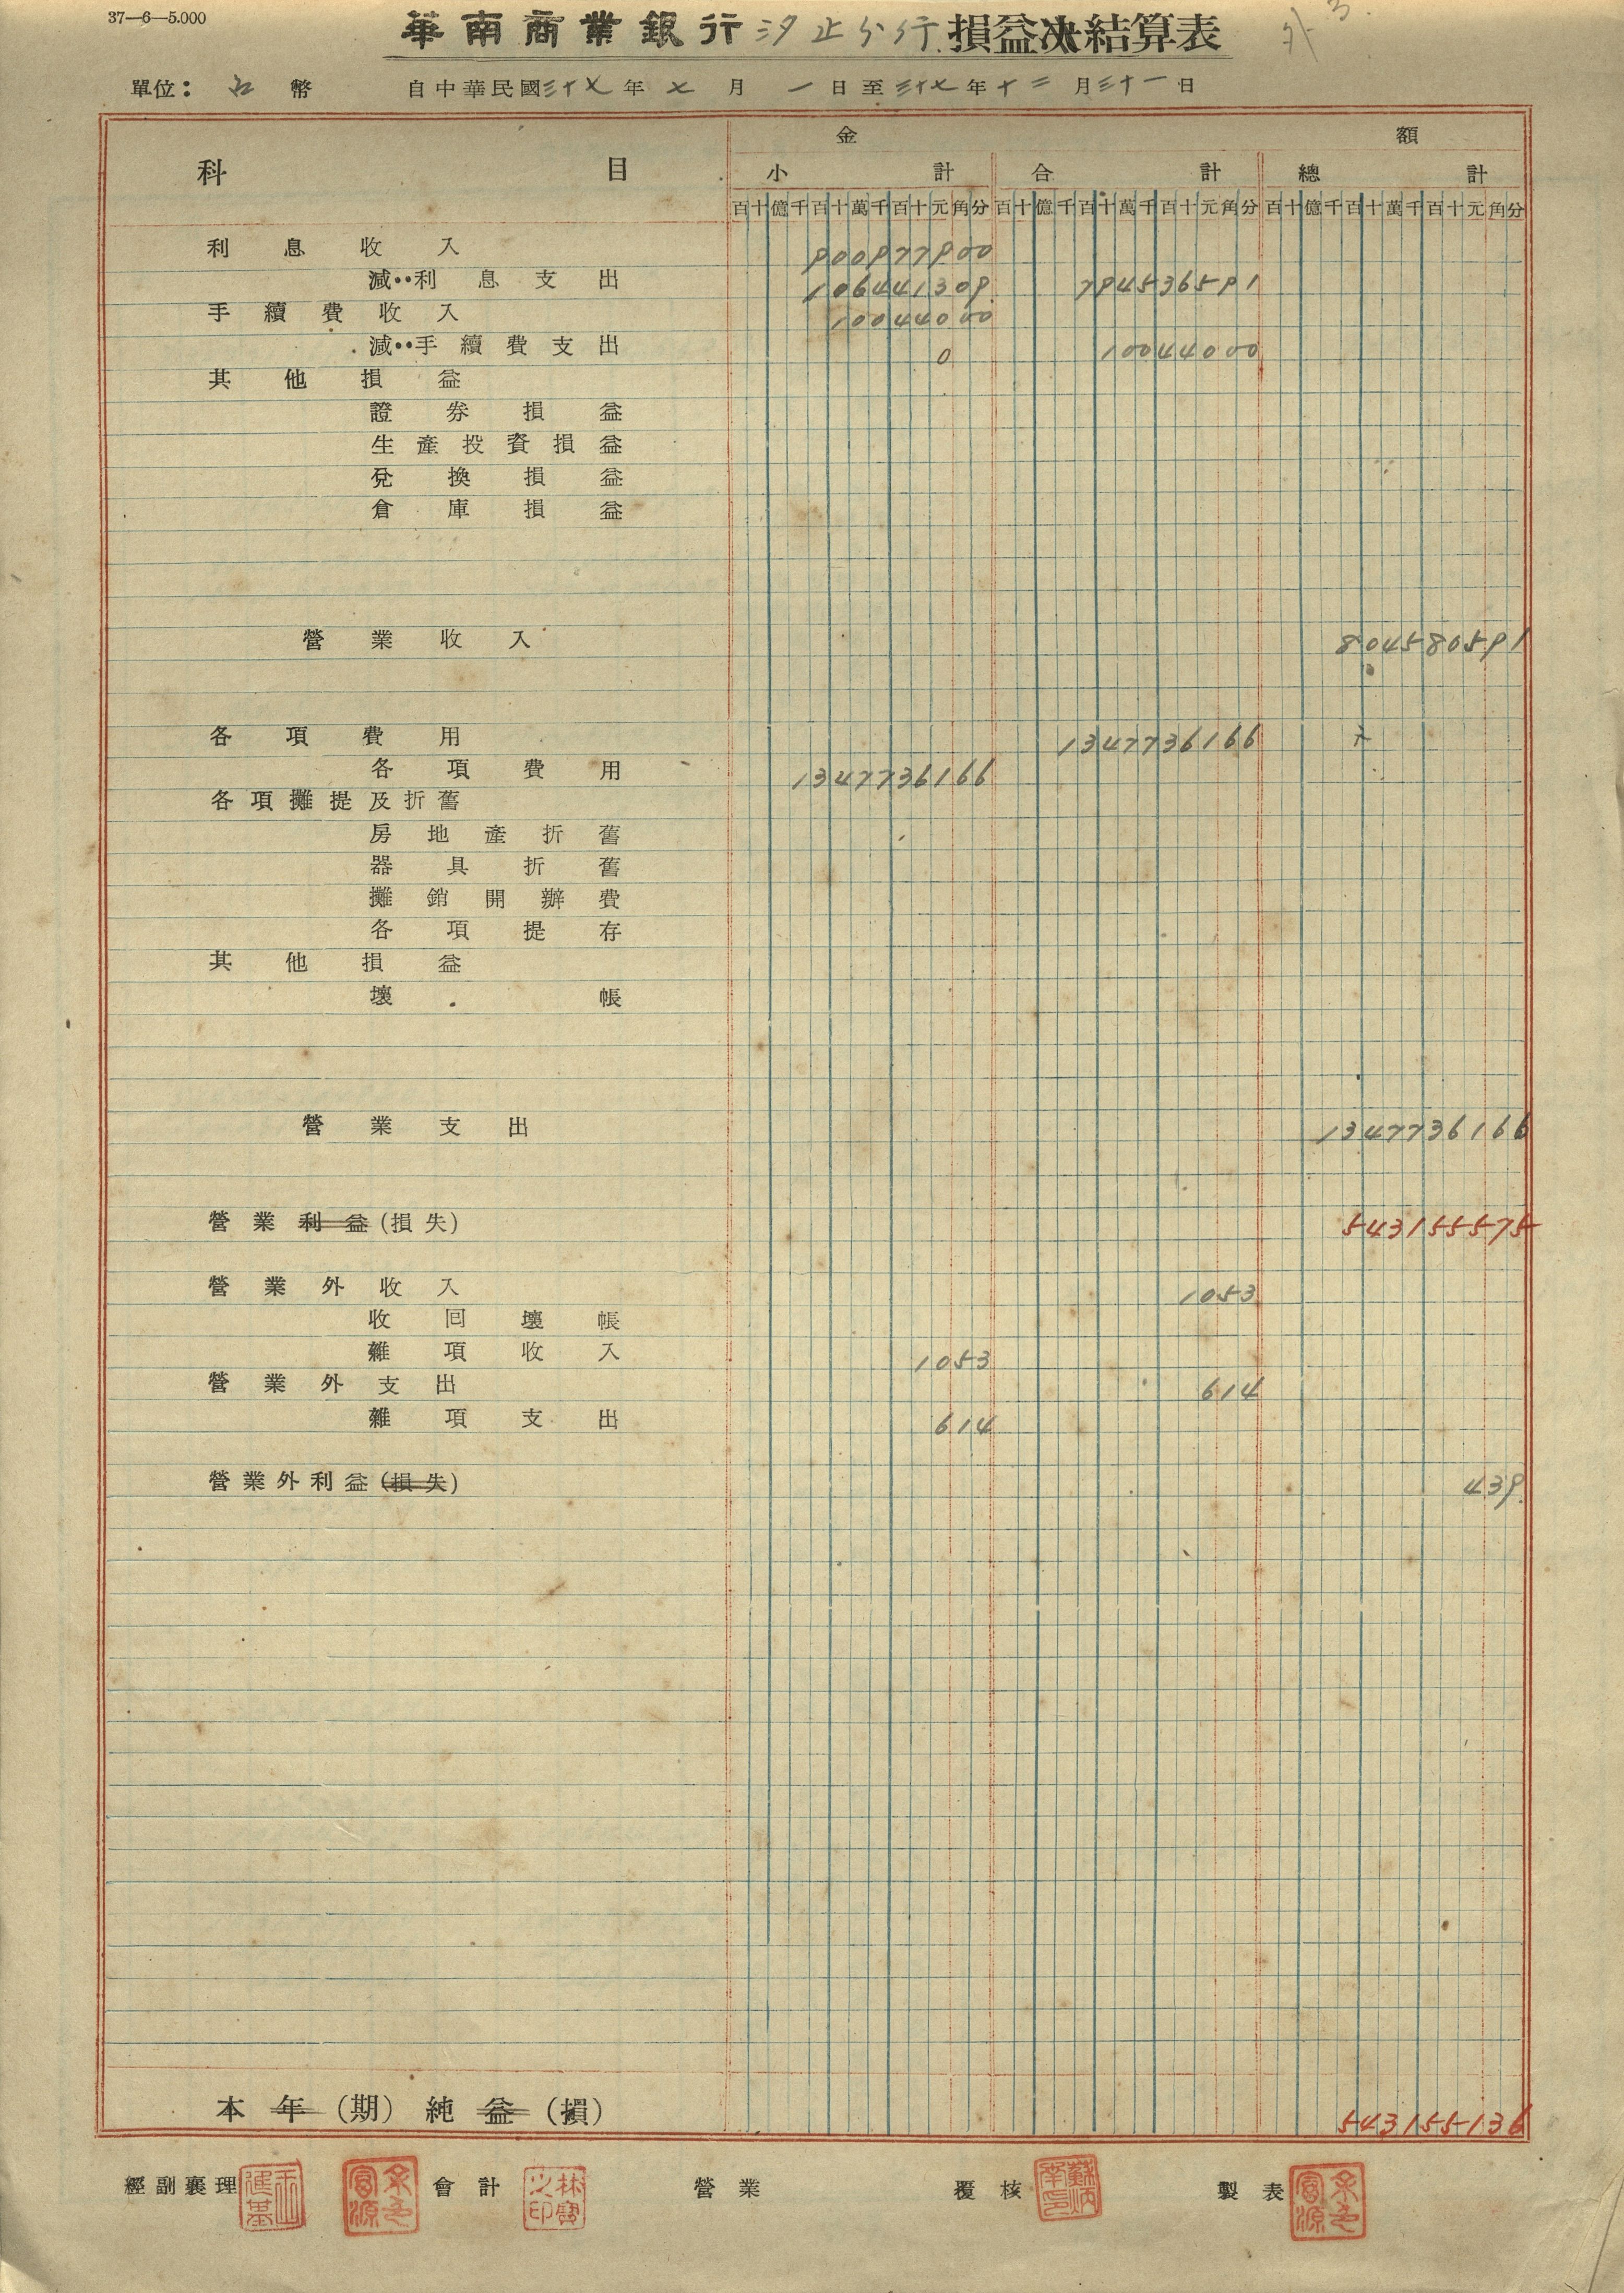 37—6—5.000
華南商業銀行汐止分行損益決結算表
單位：台幣 自中華民國三十七年七月一日至三十七年十二月三十一日
金額
科目 小計 合計 總計
百十億千百十萬千百十元角分 百十億千百十萬千百十元角分 百十億千百十萬千百十元角分
利息收入 900977900
減：利息支出 106441309 794536591
手續費收入 10044000
減：手續費支出 0 10044000
其他損益
證券損益
生產投資損益
兌換損益
倉庫損益
營業收入 804580591
各項費用 1347736166
各項費用 1347736166
各項攤提及折舊
房地產折舊
器具折舊
攤銷開辦費
各項提存
其他損益
壞帳
營業支出 1347736166
營業利益(損失) 543155575
營業外收入 1053
收回壞帳
雜項收入 1053
營業外支出 614
雜項支出 614
營業外利益(損失) 439
本年(期)純益(損) 543155136
經副襄理 會計 林寶之印 營業 覆核 製表